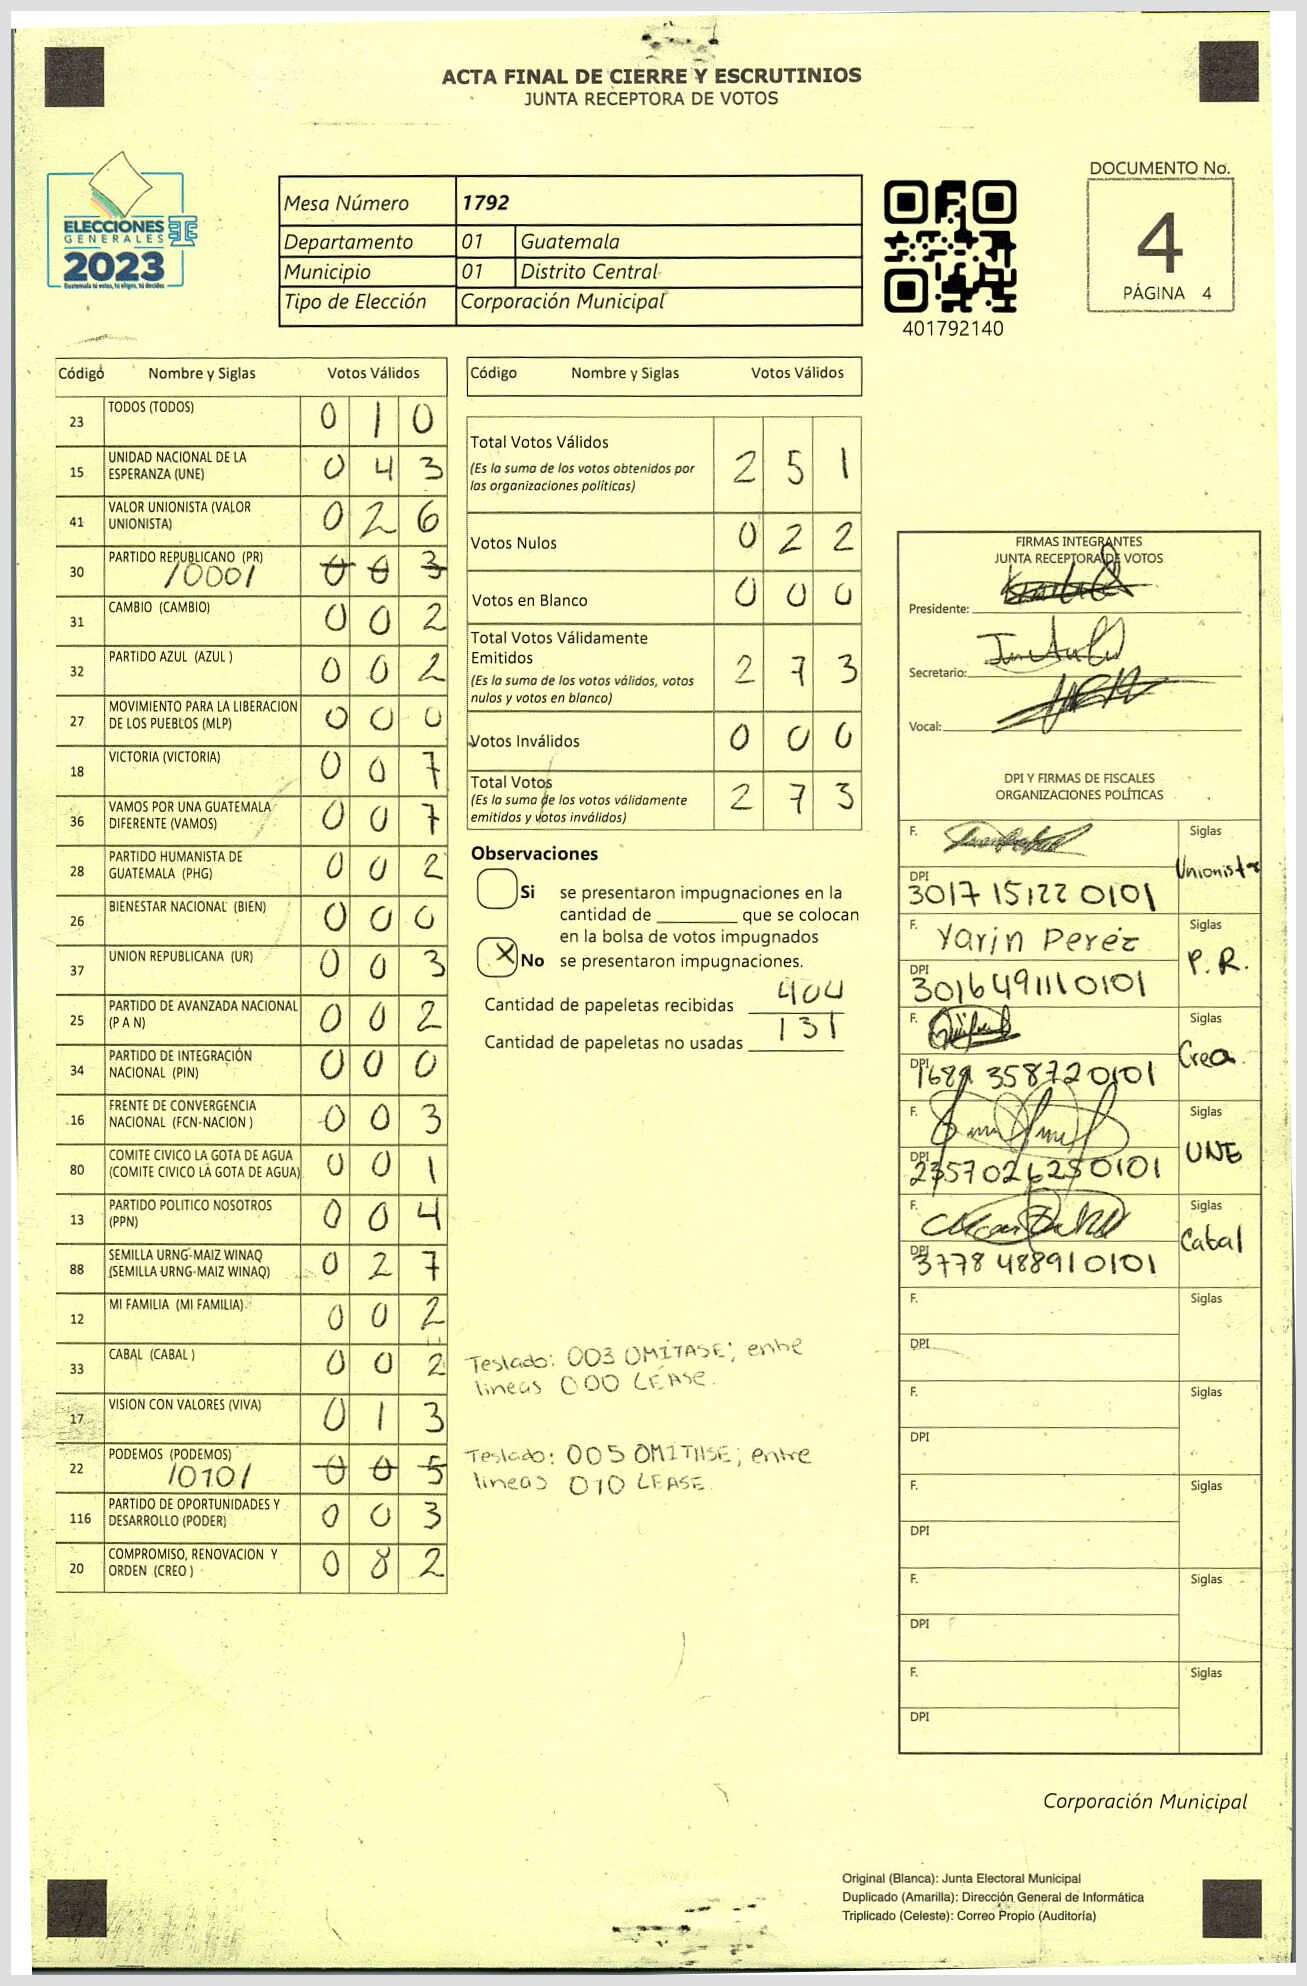 ACTA FINAL DE CIERRE Y ESCRUTINIOS
JUNTA RECEPTORA DE VOTOS
ELECCIONES
GENERALES
2023
Guatemala tú votas, tú eliges, tú decides
Mesa Número 1792
Departamento 01 Guatemala
Municipio 01 Distrito Central
Tipo de Elección Corporación Municipal
401792140
DOCUMENTO No.
4
PÁGINA 4
Código Nombre y Siglas Votos Válidos
23 TODOS (TODOS) 0 1 0
15 UNIDAD NACIONAL DE LA ESPERANZA (UNE) 0 4 3
41 VALOR UNIONISTA (VALOR UNIONISTA) 0 2 6
30 PARTIDO REPUBLICANO (PR) 0 0 3
/000/
31 CAMBIO (CAMBIO) 0 0 2
32 PARTIDO AZUL (AZUL ) 0 0 2
27 MOVIMIENTO PARA LA LIBERACION DE LOS PUEBLOS (MLP) 0 0 0
18 VICTORIA (VICTORIA) 0 0 7
36 VAMOS POR UNA GUATEMALA DIFERENTE (VAMOS) 0 0 7
28 PARTIDO HUMANISTA DE GUATEMALA (PHG) 0 0 2
26 BIENESTAR NACIONAL (BIEN) 0 0 0
37 UNION REPUBLICANA (UR) 0 0 3
25 PARTIDO DE AVANZADA NACIONAL (P A N) 0 0 2
34 PARTIDO DE INTEGRACIÓN NACIONAL (PIN) 0 0 0
16 FRENTE DE CONVERGENCIA NACIONAL (FCN-NACION ) 0 0 3
80 COMITE CIVICO LA GOTA DE AGUA (COMITE CIVICO LA GOTA DE AGUA) 0 0 1
13 PARTIDO POLITICO NOSOTROS (PPN) 0 0 4
88 SEMILLA URNG-MAIZ WINAQ (SEMILLA URNG-MAIZ WINAQ) 0 2 7
12 MI FAMILIA (MI FAMILIA) 0 0 2
33 CABAL (CABAL ) 0 0 2
17 VISION CON VALORES (VIVA) 0 1 3
22 PODEMOS (PODEMOS) 0 0 5
/010/
116 PARTIDO DE OPORTUNIDADES Y DESARROLLO (PODER) 0 0 3
20 COMPROMISO, RENOVACION Y ORDEN (CREO ) 0 8 2
Código Nombre y Siglas Votos Válidos
Total Votos Válidos 2 5 1
(Es la suma de los votos obtenidos por
las organizaciones políticas)
Votos Nulos 0 2 2
Votos en Blanco 0 0 0
Total Votos Válidamente
Emitidos 2 7 3
(Es la suma de los votos válidos, votos
nulos y votos en blanco)
Votos Inválidos 0 0 0
Total Votos 2 7 3
(Es la suma de los votos válidamente
emitidos y votos inválidos)
Observaciones
Si se presentaron impugnaciones en la
cantidad de ________ que se colocan
en la bolsa de votos impugnados
X No se presentaron impugnaciones.
Cantidad de papeletas recibidas 404
Cantidad de papeletas no usadas 131
Teslado: 003 OMITASE; entre
lineas 000 LÉASE.
Teslado: 005 OMITASE; entre
lineas 010 LEASE.
FIRMAS INTEGRANTES
JUNTA RECEPTORA DE VOTOS
Presidente:
Secretario:
Vocal:
DPI Y FIRMAS DE FISCALES
ORGANIZACIONES POLÍTICAS
F. Siglas
Unionista
DPI 3017 15122 0101
F. Yarin Peréz Siglas
P. R.
DPI 3016491110101
F. Siglas
Creo
DPI 1689 35872 0101
F. Siglas
UNE
DPI 2357026250101
F. Siglas
Cabal
DPI 3778 48891 0101
F. Siglas
DPI
F. Siglas
DPI
F. Siglas
DPI
F. Siglas
DPI
F. Siglas
DPI
Corporación Municipal
Original (Blanca): Junta Electoral Municipal
Duplicado (Amarilla): Dirección General de Informática
Triplicado (Celeste): Correo Propio (Auditoría)